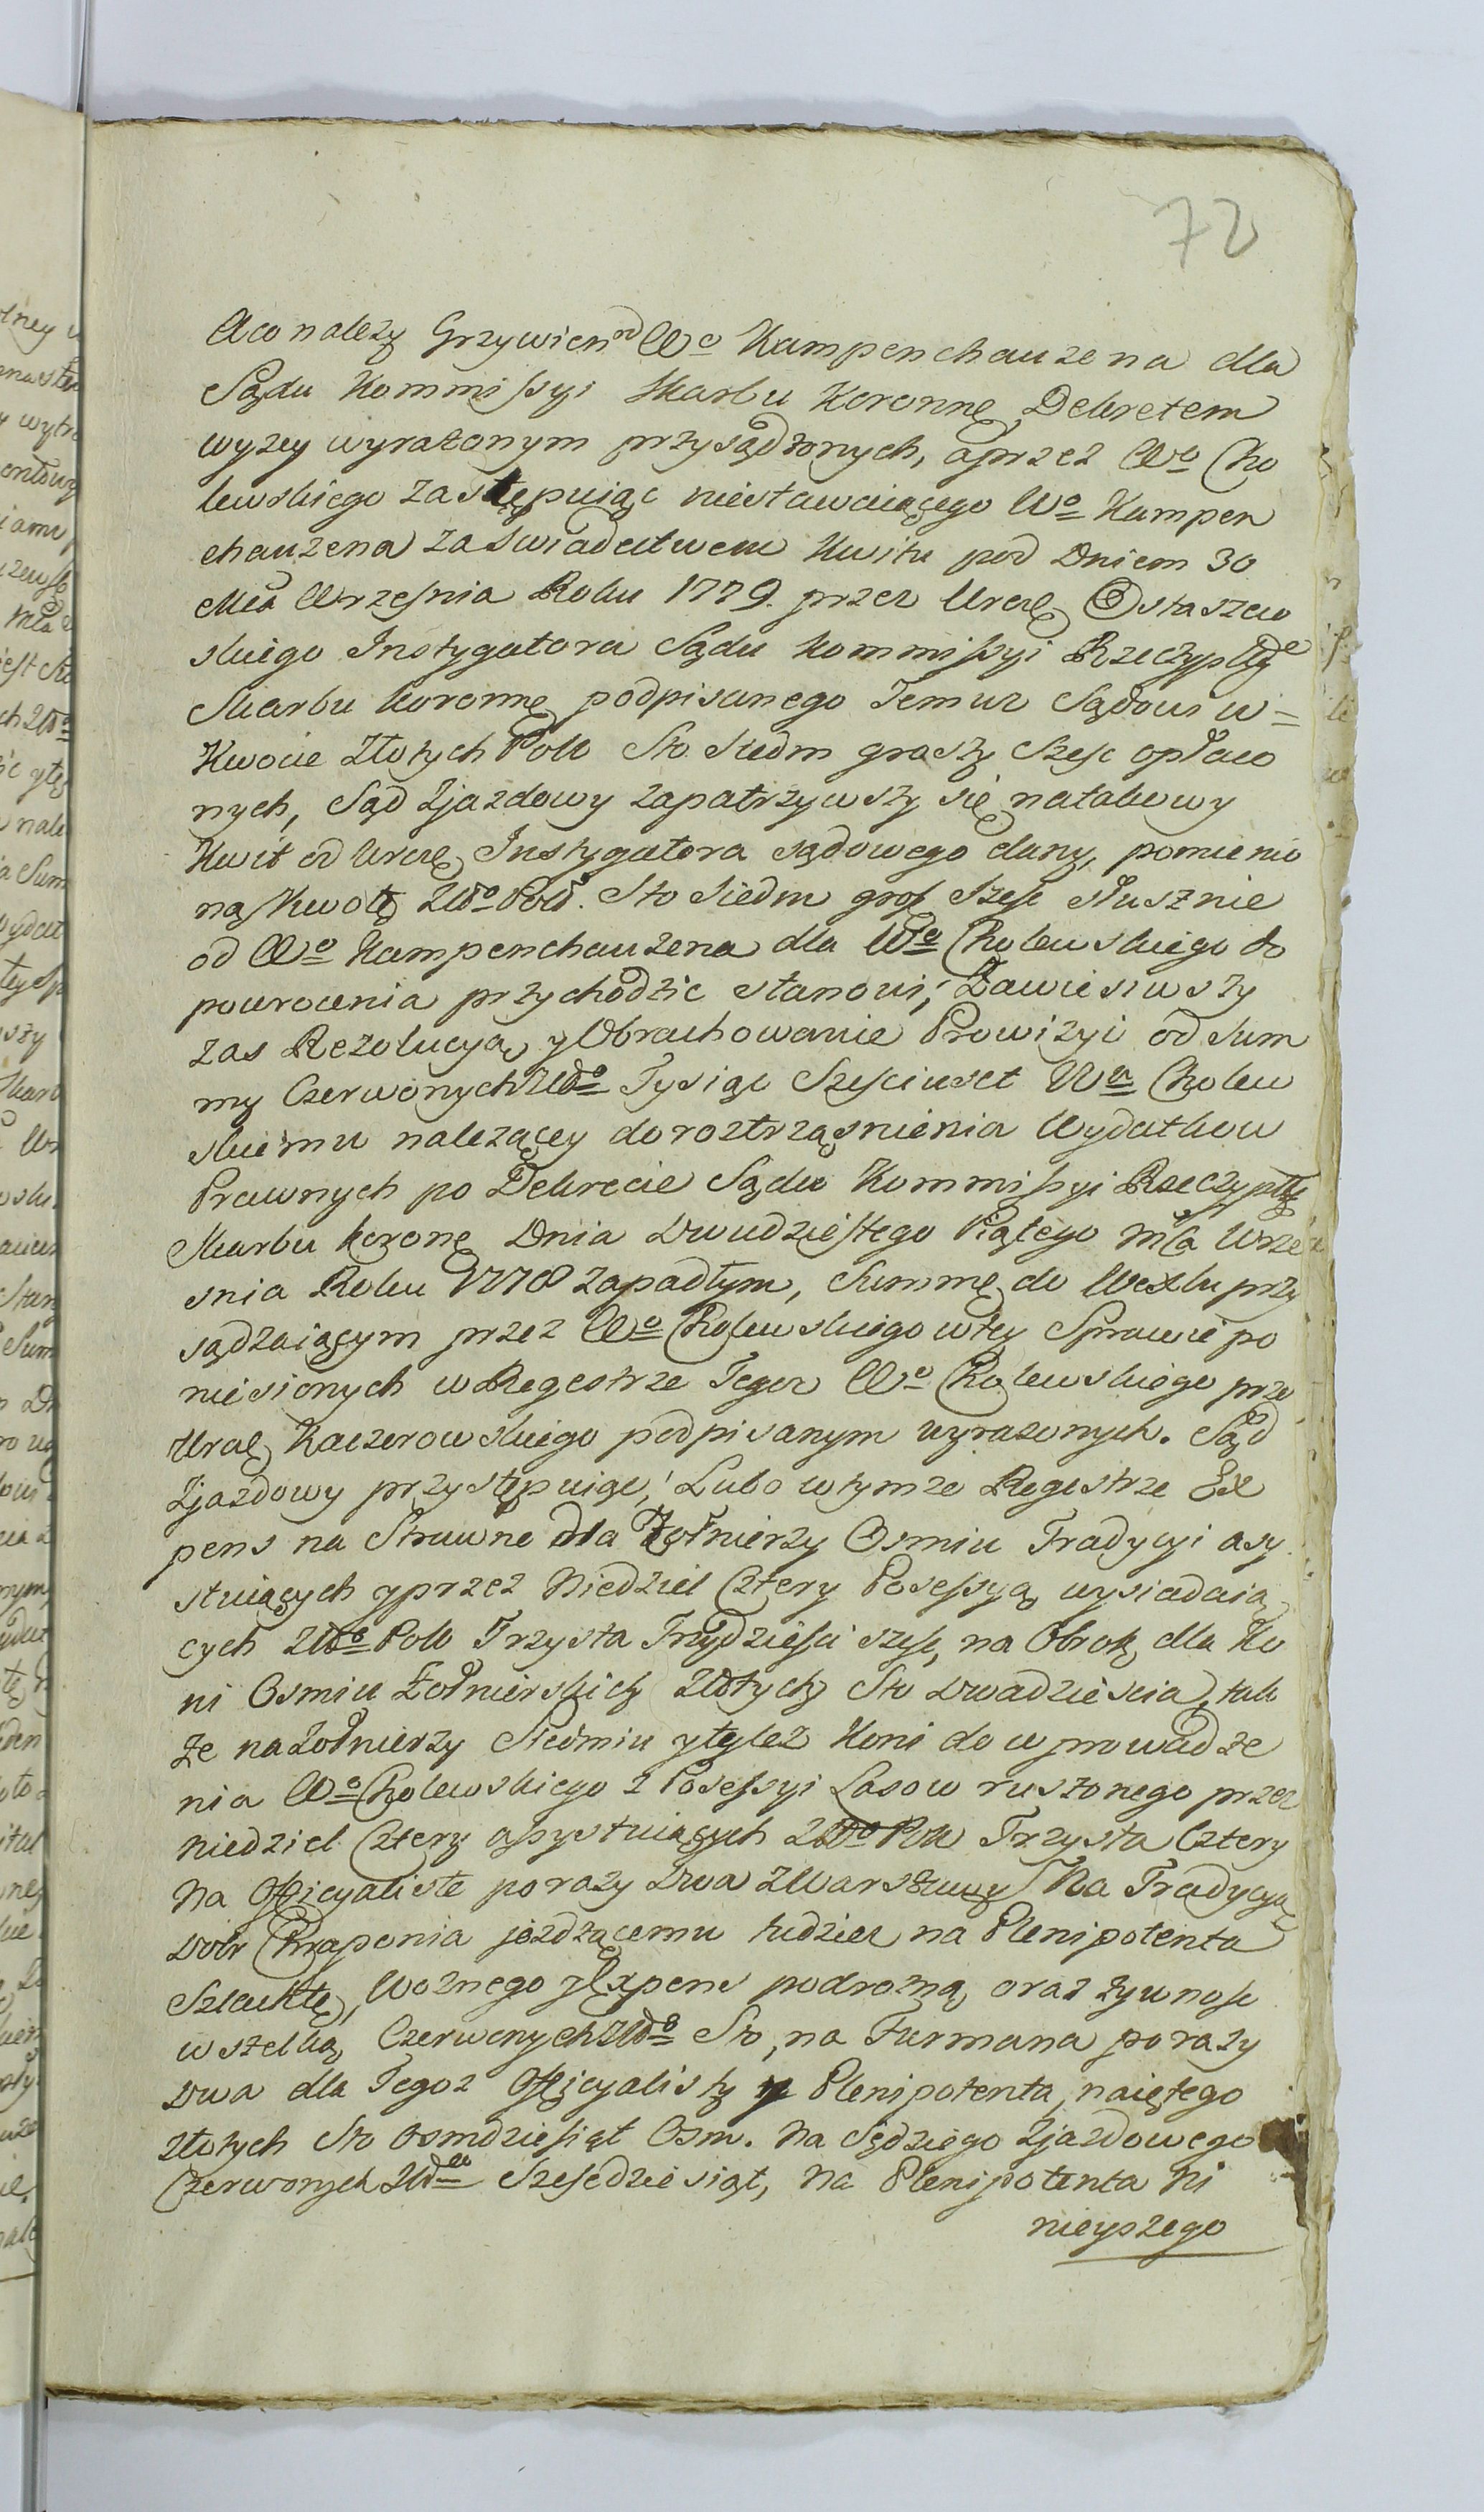 72
A co należy Grzywien od Wo Kampenchauzena dla
Sądu Kommissyi Skarbu Koronne Dekretem
wyzey wyrażonym przysądzonych, a przez Wo Cho
lewskiego zastępuiąc niestawaiącego Wo Kampen
chauzena za swiadectwem Kwitu pod Dniem 30
Mca Wrzesnia Roku 1779. przez Urere Ostaszew
skiego Instygatora Sądu Kommissyi Rzeczyplteye
Skarbu koronne podpisanego Temuz Sądowi w=
Kwocie Złotych Pols Sto Siedm groszy Szesc opłaco
nych, Sąd Zjazdowy zapatrzywszy się na takowy
Kwit od Urere Instygatora sądowego dany, pomienio
ną Kwotę Złło Pols. Sto Siedm gros Szesc słusznie
od Wo Kampenchauzena dla Wo Cholewskiego do
powrocenia przychodzic stanowi; Zawiesiwszy
zas Rezolucyą y Obrachowanie Prowizyi od Sum
my Czerwonych Złło Tysiąc Szesciuset Wu Cholew
skiemu nalezącey do roztrząsnienia Wydatkow
Prawnych po Dekrecie Sądu Kommissyi Rzeczyplty
Skarbu korone Dnia Dwudziestego Piątego Mca Wrze
snia Roku 1778 zapadłym, Summę do Wexlu przy
sądzaiącym przez Wo Cholewskiego w tey Sprawie po
niesionych w Regestrze Tegoz Wo Cholewskiego prze
Urale Kaczorowskiego podpisanym wyrazonych. Sąd
Zjazdowy przystępuiąc, Lubo w tymze Regestrze Ex
pens na Strawne dla Żołnierzy Osmiu Tradycyi asy
stuiących y przez Niedziel Cztery Posessyą wysiadaią
cych Złło Pols Trzysta Trzydziesci szesc, na Obrok dla Ko
ni Osmiu Żołnierskich Złotych Sto dwadziescia, tak
że na żołnierzy Siedmiu y tyleż Koni do wprowadze
nia Wo Cholewskiego z Posessyi Lasow ruszonego przez
niedziel Cztery assystuiących Złło Pols Trzysta Cztery
Na Officyaliste po razy Dwa z Warszawy Na Tradycyą
Dobr Chraponia jeżdżącemu tudziez na Plenipotenta
Szlachtę, Woznego y Expens podrozną oraz żywnosc
wszelką Czerwonych Złło Sto, na Furmana po razy
dwa dla Tegoz Officyalisty y Plenipotenta, naiętego
złotych Sto Osmdziesiąt Osm. Na Sędziego Zjazdowego
Czerwonych Złł Szescdziesiąt, Na Plenipotenta Ni
nieyszego